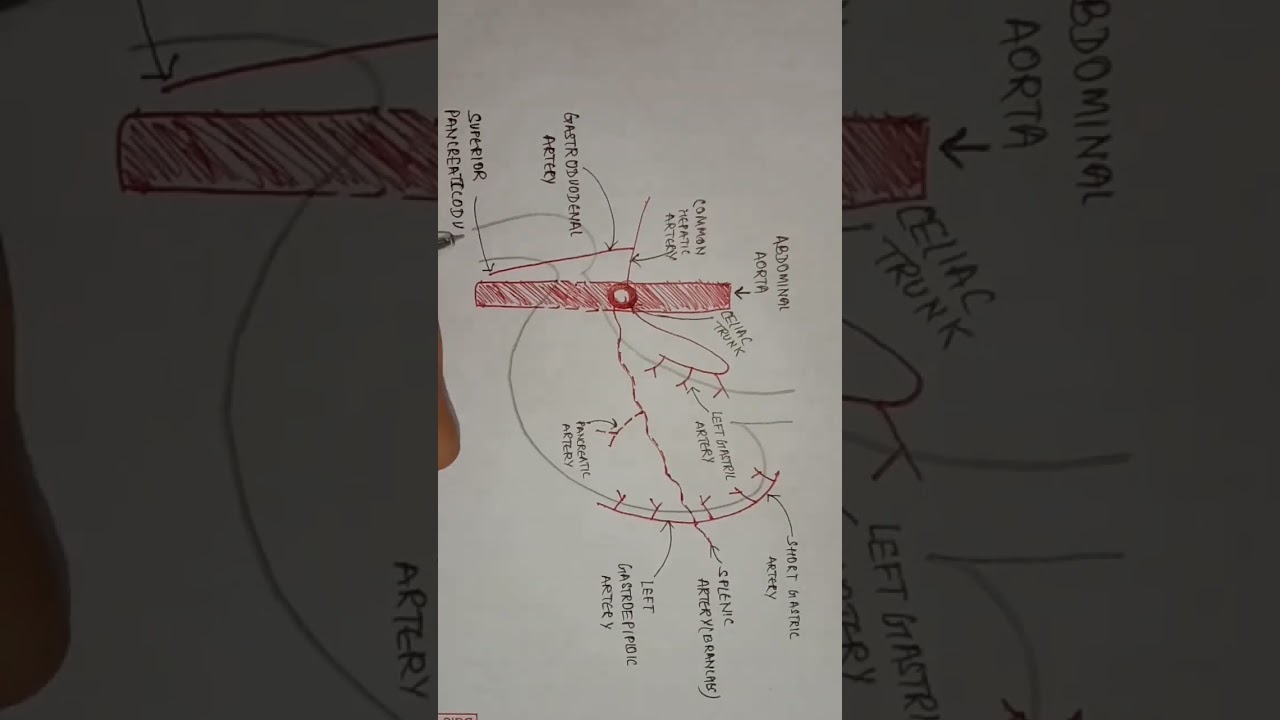 ABDOMINAL
AORTA
CELIAC
TRUNK
COMMON
HEPATIC
ARTERY
GASTRODUODENAL
ARTERY
SUPERIOR
PANCREATICODU
LEFT GASTRIC
ARTERY
SHORT GASTRIC
ARTERY
SPLENIC
ARTERY(BRANCHES)
LEFT
GASTROEPIPLOIC
ARTERY
PANCREATIC
ARTERY
ABDOMINAL
AORTA
CELIAC
TRUNK
LEFT GASTRI
ARTERY
ARTERY